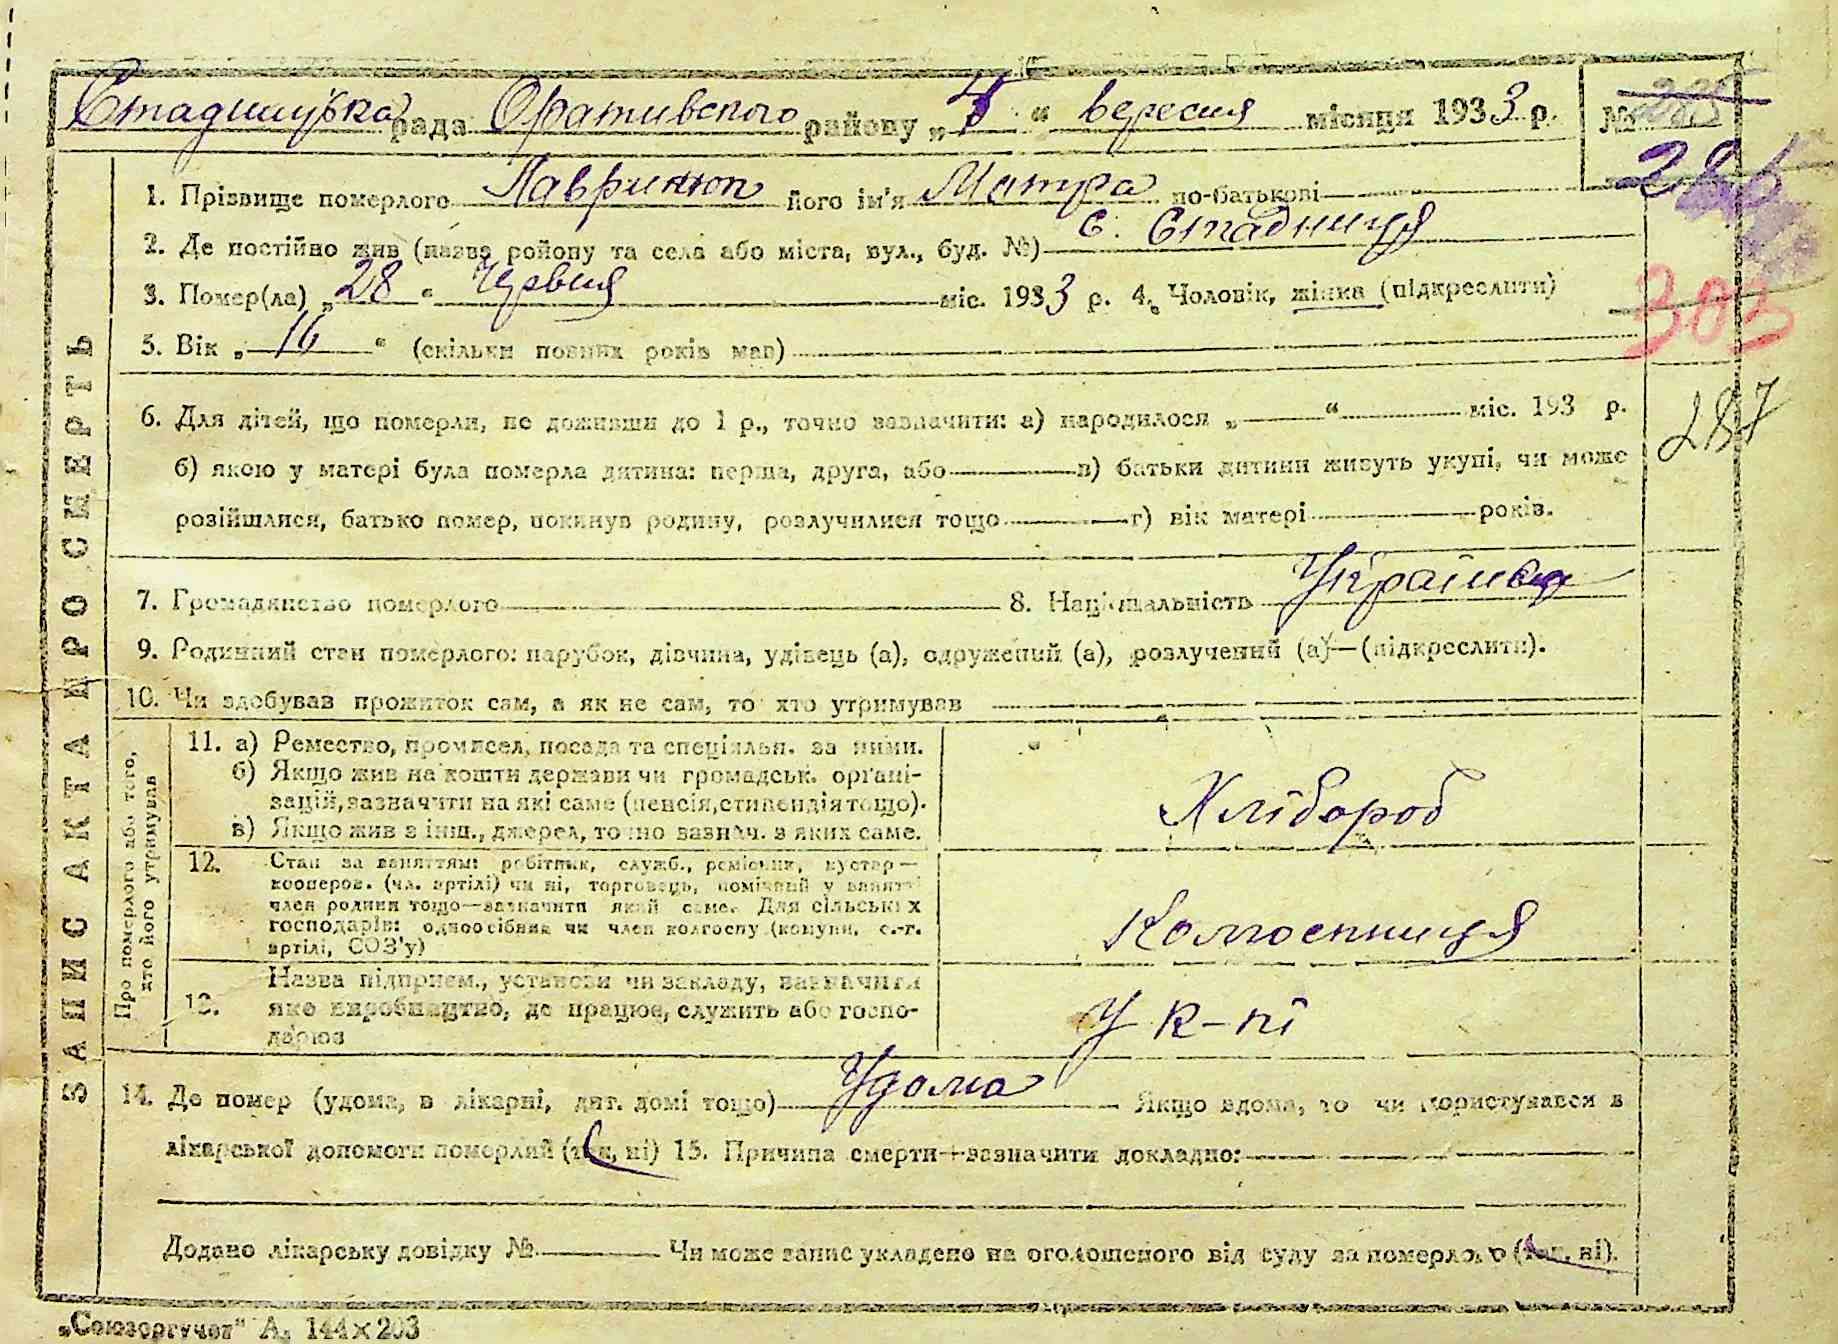 Стадницька рада Оративського району „4“ вересня місяця 1933 р. №
285
1. Прізвище померлого Лавринюк його ім'я Мотря по-батькові
2. Де постійно жив (назва району та села або міста, вул., буд. №) с. Стадниця
3. Помер(ла) „28“ Червня міс. 1933 р. 4. Чоловік, жінка (підкреслити)
303
5. Вік „16“ (скільки повних років мав)
6. Для дітей, що померли, не доживши до 1 р., точно зазначити: а) народилося „ “ міс. 193 р.
287
б) якою у матері була померла дитина: перша, друга, або в) батьки дитини живуть укупі, чи може
розійшлися, батько помер, покинув родину, розлучилися тощо г) вік матері років.
7. Громадянство померлого 8. Національність Українка
9. Родинний стан померлого: парубок, дівчина, удівець (а), одружений (а), розлучений (а)—(підкреслити).
10. Чи здобував прожиток сам, а як не сам, то хто утримував
ЗАПИС АКТА ПРО СМЕРТЬ
Про померлого або того, хто його утримував
11. а) Ремество, промисел, посада та спеціяльн. за ними.
б) Якщо жив на кошти держави чи громадськ. органі-
зацій, зазначити на які саме (пенсія, стипендія тощо).
в) Якщо жив з інш., джерел, точно зазнач. з яких саме.
Хлібороб
12. Стан за заняттям: робітник, служб., ремісник, кустар—
кооперов. (чл. артілі) чи ні, торговець, помічний у занятті
член родини тощо—зазначити який саме. Для сільських
господарів: одноосібник чи член колгоспу (комуни, с.-г.
артілі, СОЗ'у)
Колгоспниця
13. Назва підприєм., установи чи закладу, зазначити
яке виробництво, де працює, служить або госпо-
дарює
У к-пі
14. Де помер (удома, в лікарні, дит. домі тощо) Удома Якщо вдома, то чи користувався в
лікарської допомоги померлий (так, ні) 15. Причина смерти—зазначити докладно:
Додано лікарську довідку № Чи може запис укладено на оголошеного від суду за померлого (так, ні).
„Союзоргучет" А. 144×203